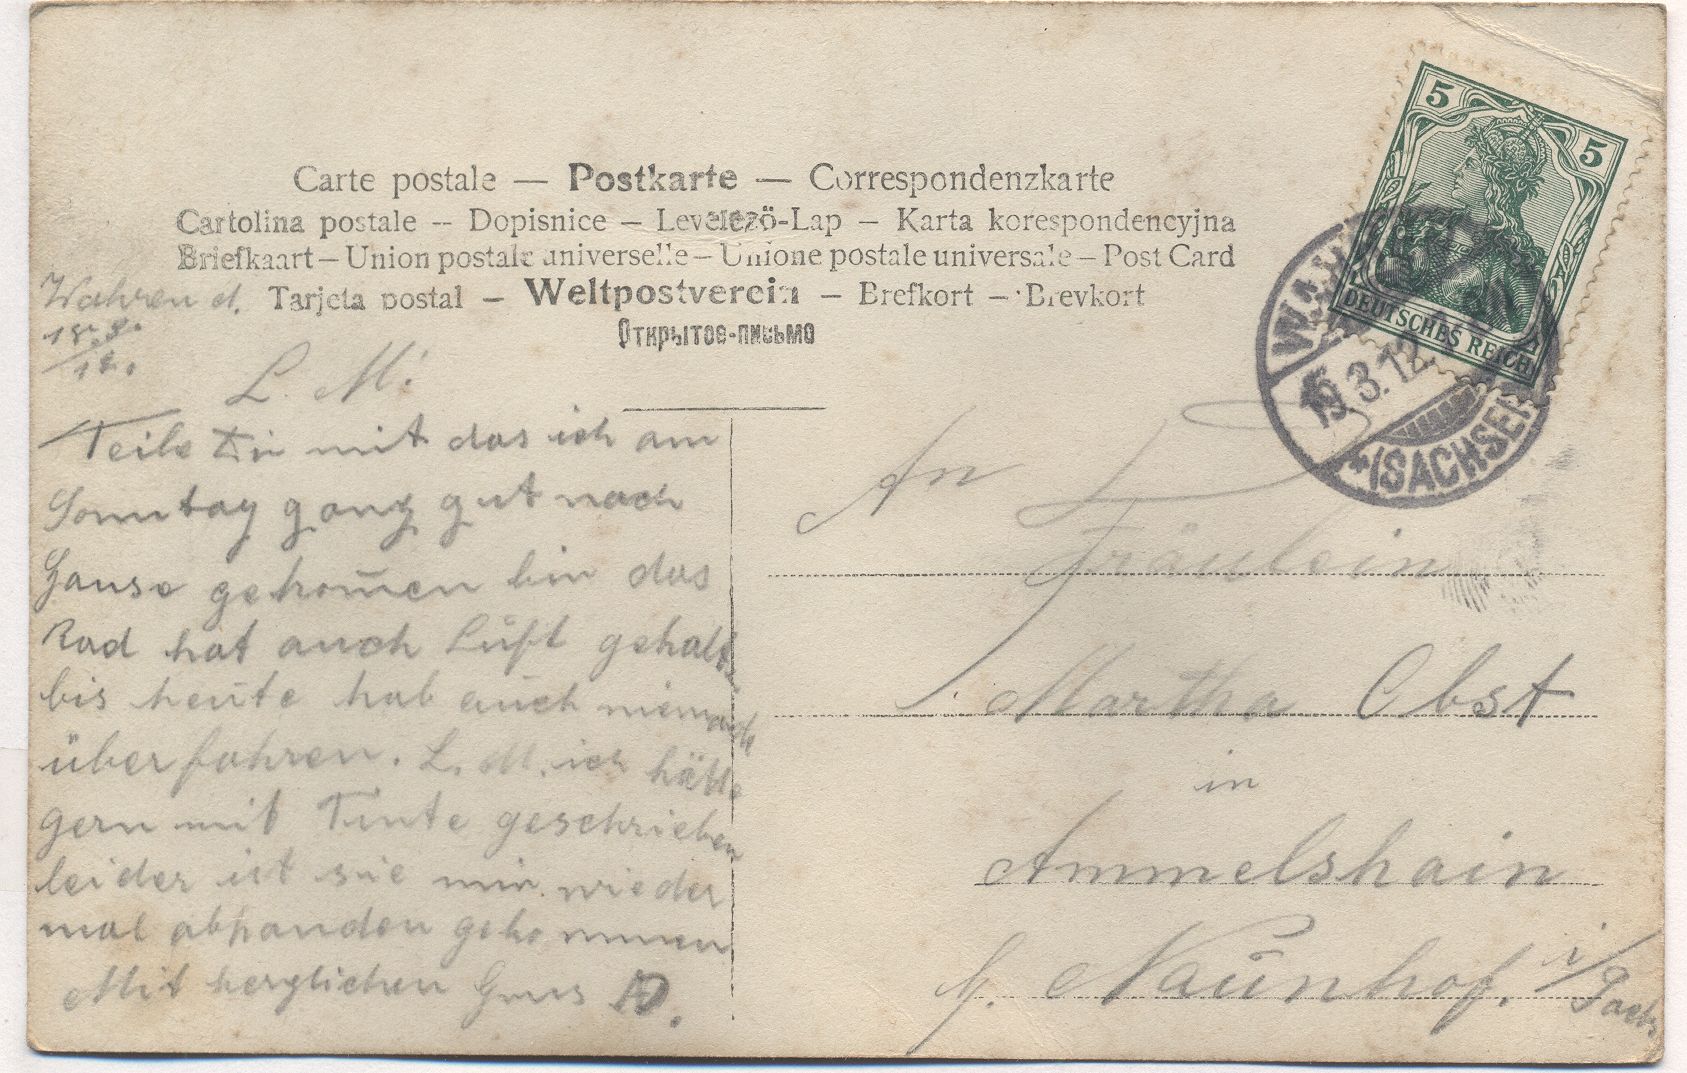 Carte postale — Postkarte — Correspondenzkarte
Cartolina postale – Dopisnice – Levelező-Lap – Karta korespondencyjna
Briefkaart – Union postale universelle – Unione postale universale – Post Card
Tarjeta postal – Weltpostverein – Brefkort – Brevkort
Открытое-письмо
5 5
DEUTSCHES REICH
19.3.12
*(SACHSEN
Wahren d.
18.3.
12.
L. M!
Teile Dir mit das ich am
Sonntag ganz gut nach
Hause gekom̅en bin das
Rad hat auch Luft gehalt.
bis heute hab auch niemand
überfahren. L. M. ich hätte
gern mit Tinte geschrieben
leider ist sie mir wieder
mal abhanden gekommen
Mit herzlichen Gruss
An
Fräulein
Martha Obst
in
Ammelshain
Naunhof. i/Sachs.